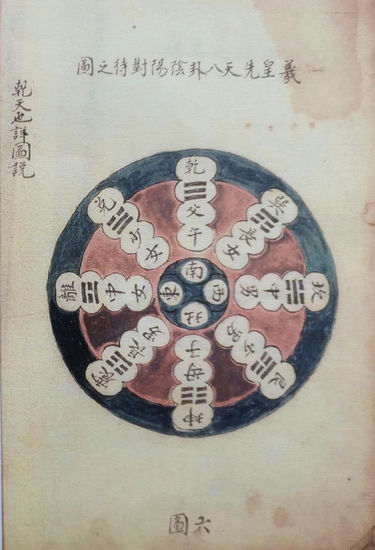 羲皇先天八卦陰陽對待之圖
乾天也詳圖說
乾父午
巽長女
坎中男
艮少男
坤母子
震長男
離中女
兌少女
南
西
北
東
六圖